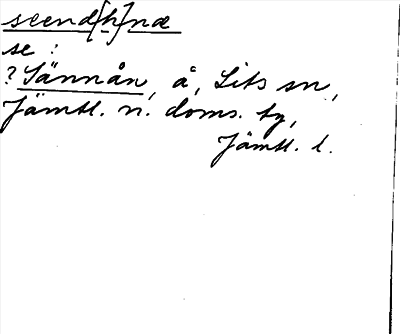 seend[h]næ
se :
? Sännån, å, Lits sn,
Jämtl. n. doms. tg,
Jämtl. l.